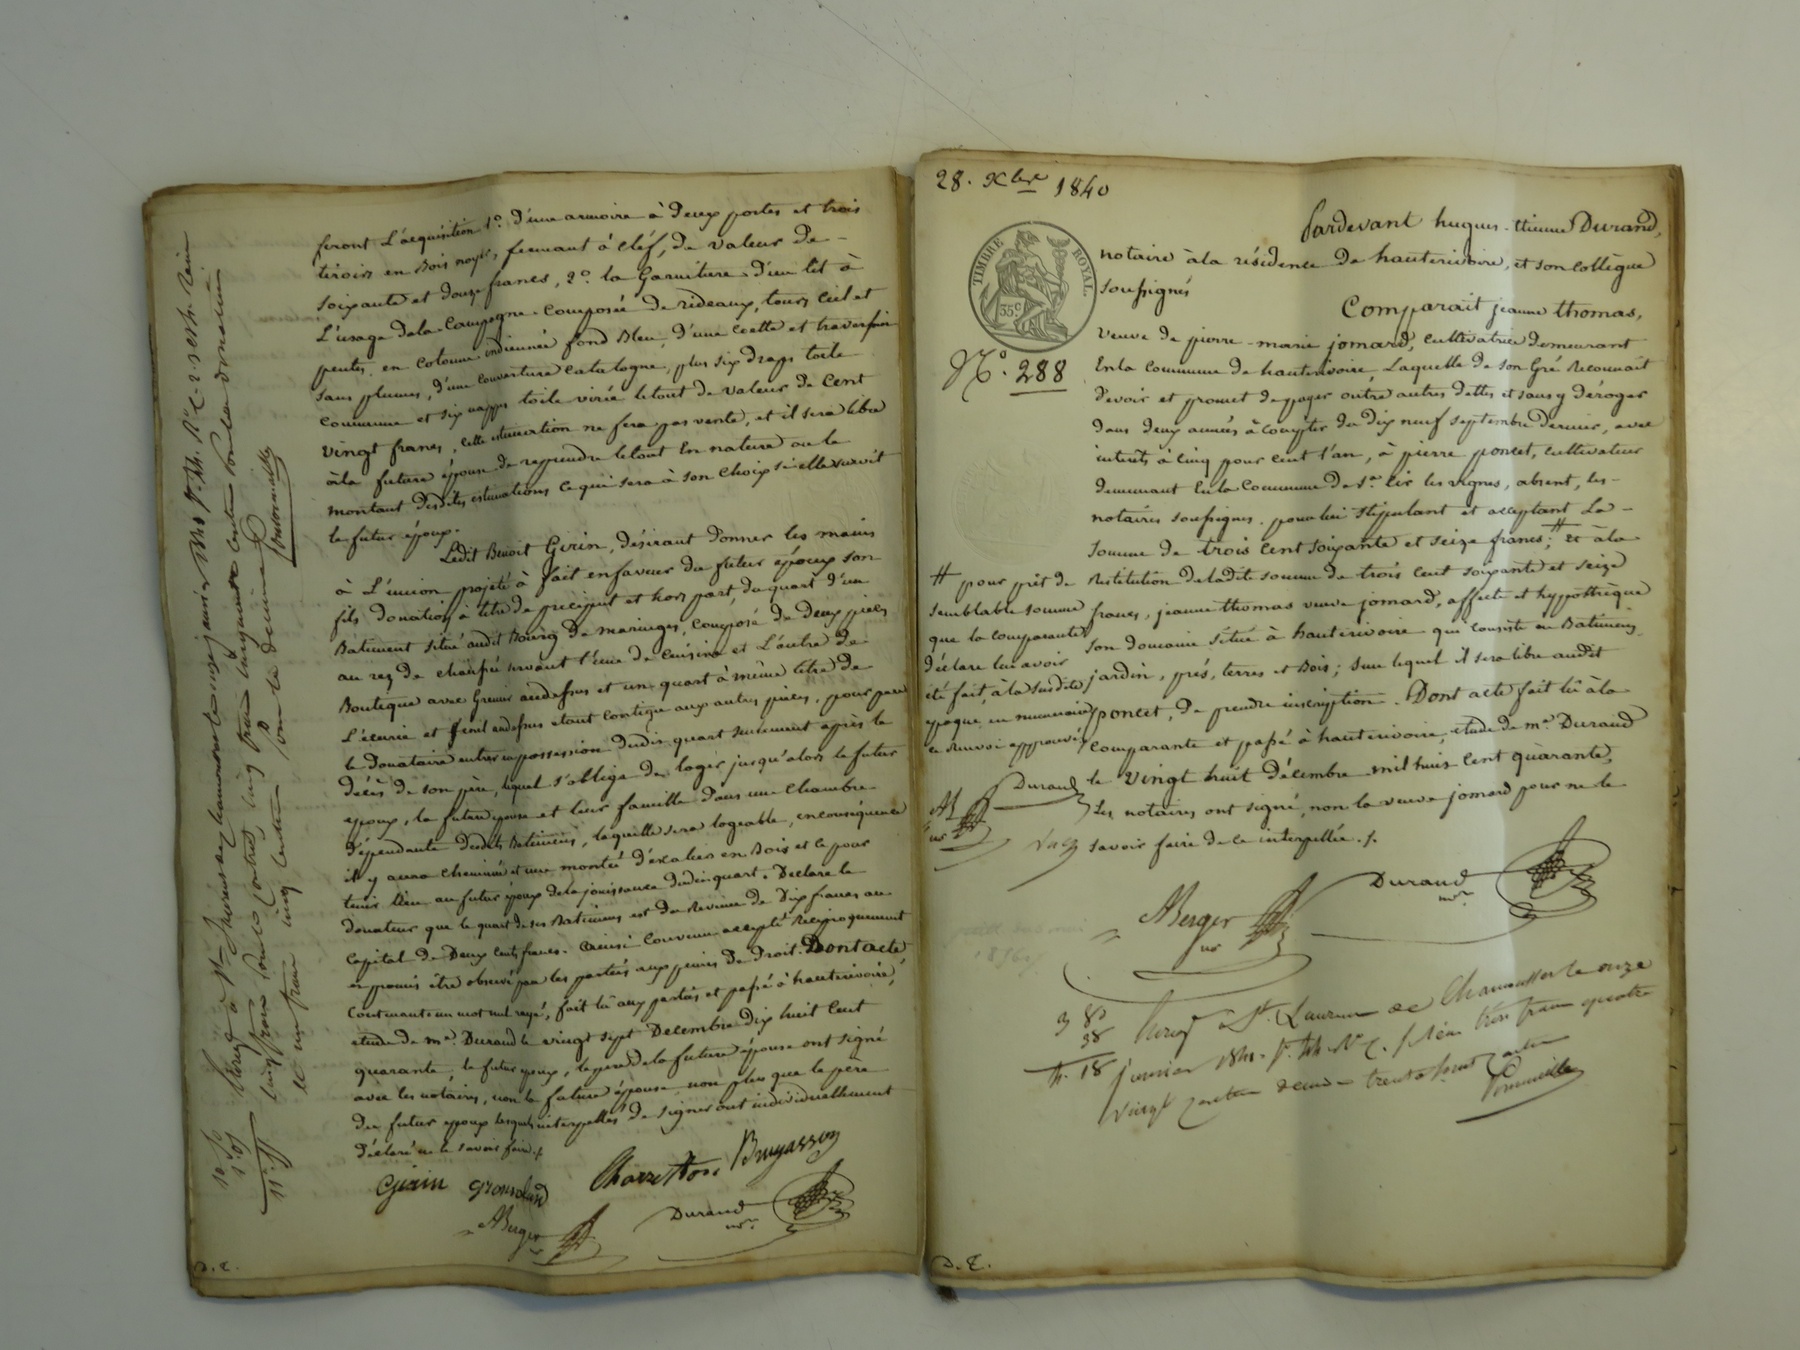 feront L'acquisition 1o. d'une armoire à deux portes et trois
tiroirs en Bois noyer, fermant à cléf, de valeur de -
soixante et douze francs, 2o. la Garniture d'un lit à
L'usage dela Campagne Composée de rideaux, tours, Ciel et
pentes, en Cotonne indiennée fond Bleu, d'une Coette et traversin
sans plumes, d'une Couverture Catalogne, plus six draps toile
Commune et six nappes toile virié le tout de valeur de Cent
vingt francs, cette estimation ne fera pas vente, et il sera libre
àla future épouse de reprendre letout En nature ou le
montant desdites estimations ce qui sera à son Choix si elle survit
le futur époux.
Ledit Benoit Girin, désirant donner les mains
à L'union projeté à fait enfaveur du futur époux son
fils donation à titre de préciput et hors part, du quart d'un
Batiment situé audit Bourg de maringes, Composé de Deux pièces
au rez de chaussée servant l'une de Cuisine et L'autre de
Boutique avec Grenier audessus et un quart à même titre de
L'écurie et fenil audessus etant Contigue aux autres pièces, pour par
le donataire entrer enpossession dudit quart seulement après le
décès de son père, lequel s'oblige de loger jusqu'alors le futur
epoux, la future épouse et leur famille dans une Chambre
dépendante desdits Batiments, laquelle sera logeable, enconséquence
il y aura Cheminée et une montée d'escaliers en Bois et ce pour
tenir lieu au futur époux dela jouissance dudit quart. Declare le
donateur que le quart de ses Batiments est du Revenu de Dix francs au
Capital de Deux Cents francs. Ainsi Convenu accepté Reciproquement
et promis être observé par les parties aux peines de Droit. Dont acte
Contenant un mot nul rayé, fait lû aux parties et passé à hauterivoire,
etude de me. Durand le vingt sept Decembre Dix huit Cent
quarante, le futur époux, le père de la future épouse ont signé
avec les notaires, non la future épouse non plus que le père
du futur epoux lesquels interpellés de signer ont individuellement
déclaré ne le savoir faire./.
Girin Charretton Bruyasson
ABerger nre Durand nre.
D. E.
28. Xbre 1840
Pardevant hugues-ttienne Durand,
TIMBRE ROYAL.
35 c
notaire àla résidence de hauterivoire, et son Collègue
soussignés
No. 288
Comparait jeanne thomas,
veuve de pierre-marie jomard, Cultivatrice demeurant
Enla Commune de hauterivoire, Laquelle de son Gré Reconnaît
devoir et promet depayer outre autres dettes et sans y déroger
dans deux années à Compter du Dix neuf septembre Dernier, avec
intérêts à Cinq pour Cent l'an, à pierre poncet, Cultivateur
demeurant Enla Commune de Ste. Cir les vignes, absent, les -
notaires soussignés pour lui Stipulant et acceptant La -
Somme de trois Cent soixante et seize francs; # Et à la
# pour prêt de
semblable somme
que la Comparante
déclare lui avoir
été fait, à la susdite
epoque en numeraire
ce Renvoi approuvé
Restitution deladite somme de trois Cent soixante et seize
francs, jeanne thomas veuve jomard, affecte et hyppothèque
son domaine Situé à hauterivoire qui Consiste en Batiments,
jardin, prés, terres et Bois; sur lequel il sera libre audit
poncet, de prendre inscription. Dont acte fait lû àla
Comparante et passé à hauterivoire, etude de me. Durand
le vingt huit décembre mil huit Cent quarante,
Les notaires ont signé, non la veuve jomard pour ne le
savoir faire de ce interpellée./.
Durand
AB nre
ABerger nre Durand nre.
3 80
38
4. 18
Enregé à St. Laurent de Chamousset le onze
janvier 1841. fo. Ro. C. Reçu trois francs quatre
vingt centimes decime trente huit centimes
D. E.